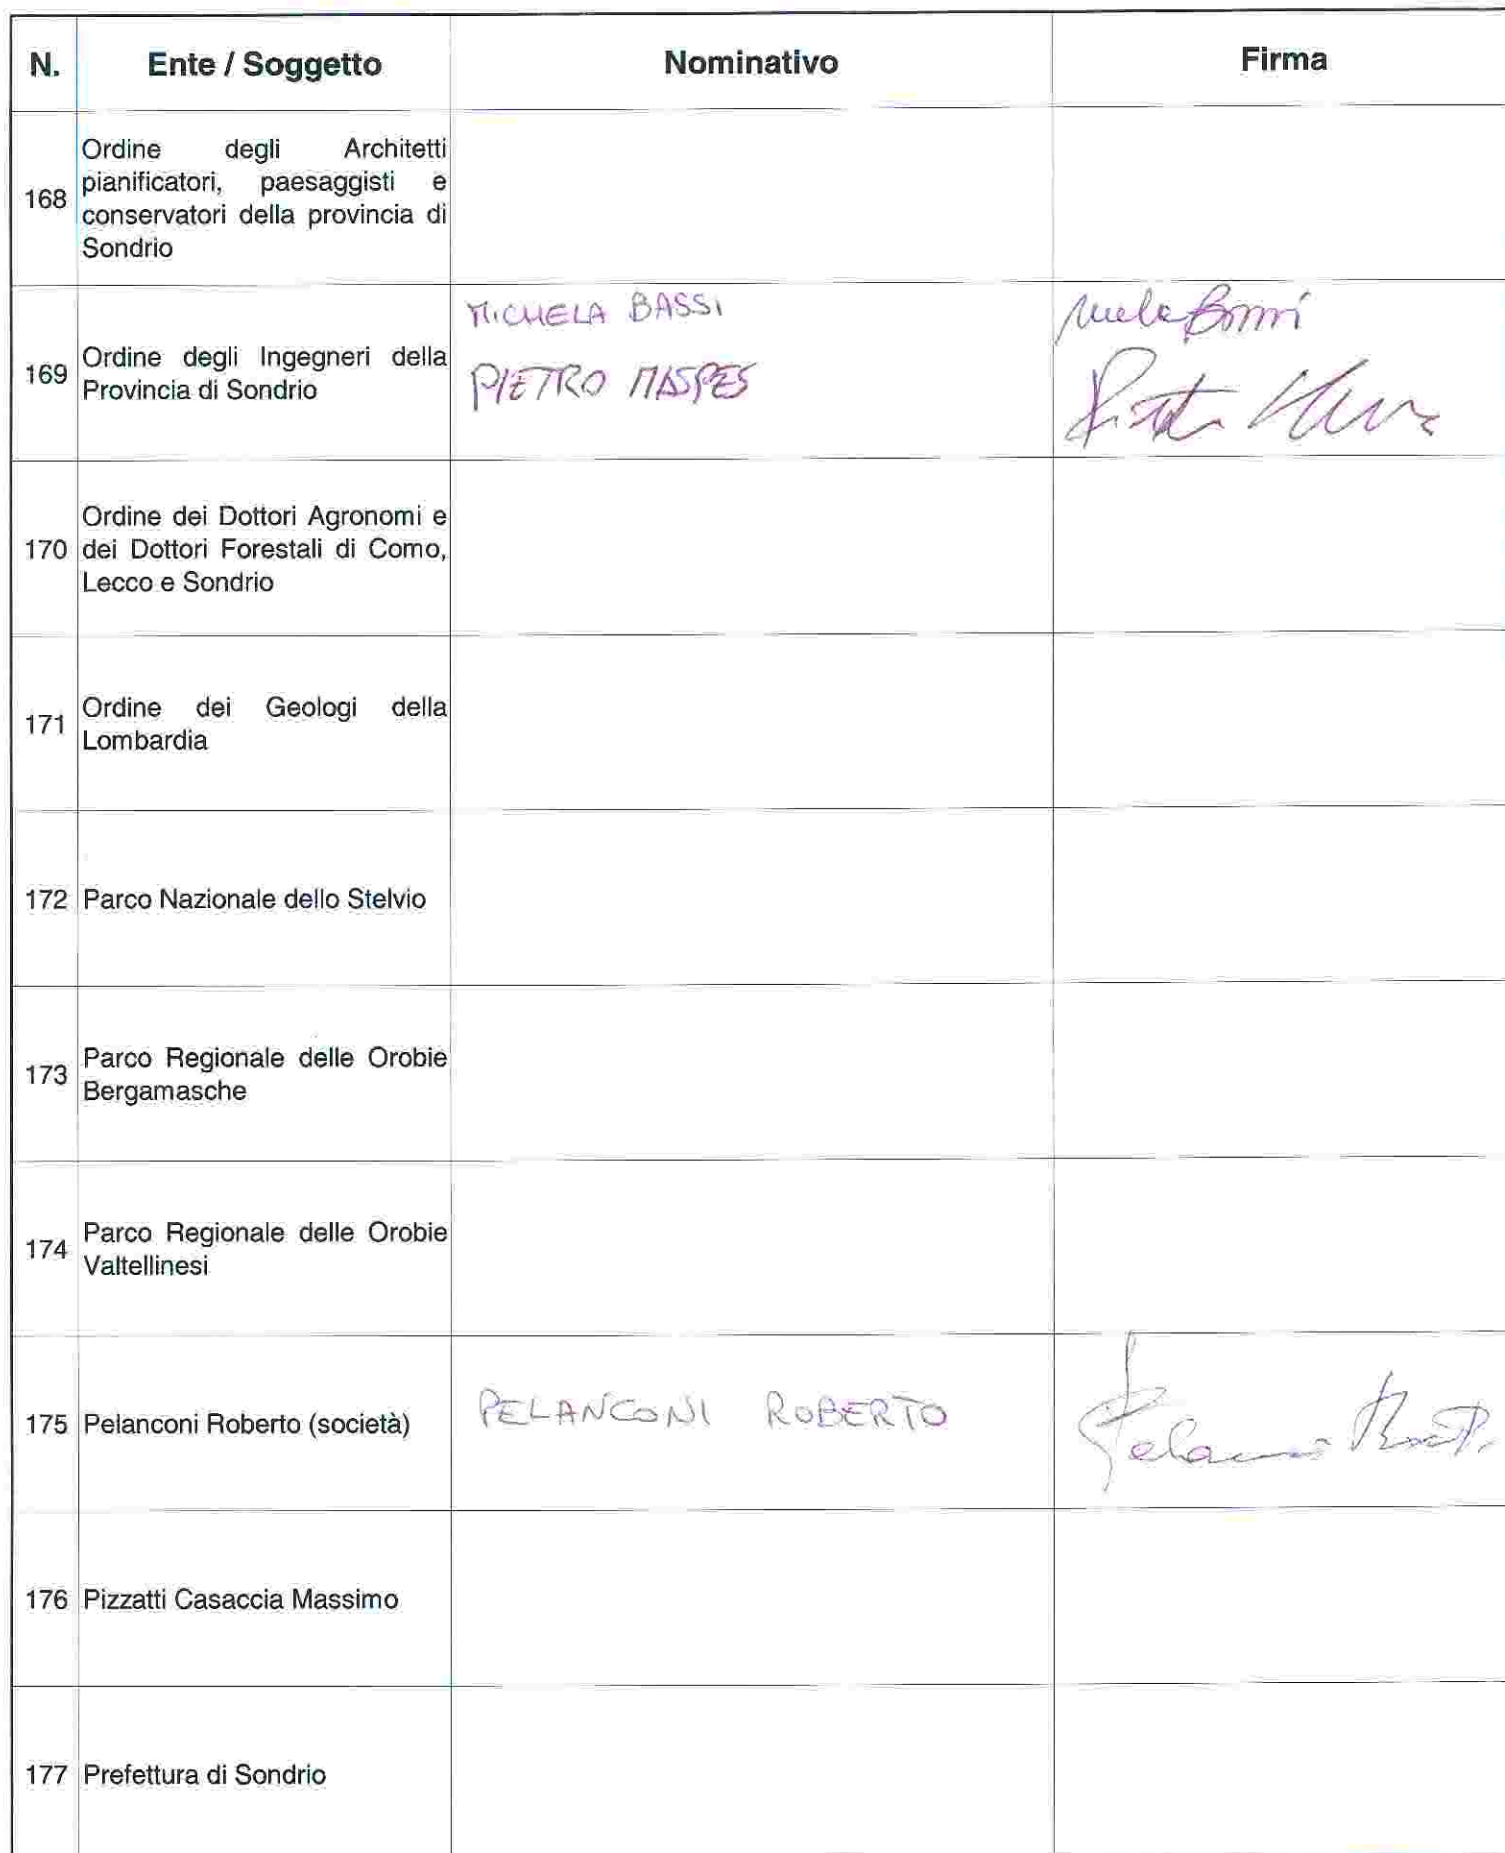 N. Ente / Soggetto Nominativo Firma
Ordine degli Architetti
pianificatori, paesaggisti e
168
conservatori della provincia di
Sondrio
MICHELA BASSI
169
Ordine degli Ingegneri della
Provincia di Sondrio
PIETRO MASPES
Ordine dei Dottori Agronomi e
170 dei Dottori Forestali di Como,
Lecco e Sondrio
171
Ordine dei Geologi della
Lombardia
172 Parco Nazionale dello Stelvio
173
Parco Regionale delle Orobie
Bergamasche
174
Parco Regionale delle Orobie
Valtellinesi
175 Pelanconi Roberto (società) PELANCONI ROBERTO
176 Pizzatti Casaccia Massimo
177 Prefettura di Sondrio